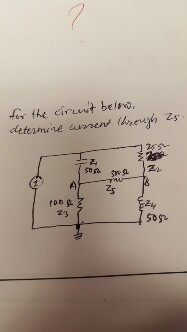 ?
for the circuit below,
determine current through Z5.
25Ω
Z1
50Ω
Z2
500Ω
A
B
Z5
100Ω
Z3
Z4
50Ω